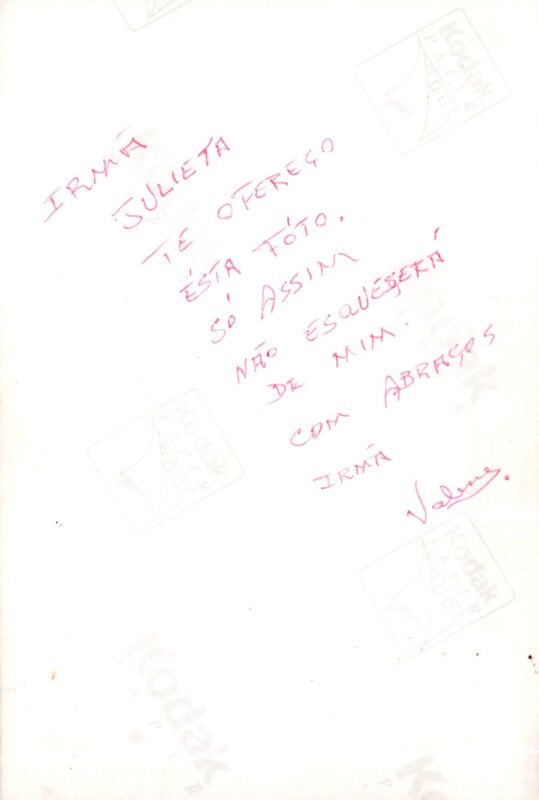 IRMÃ
JULIETA
TE OFEREÇO
ÉSTA FÓTO.
SÓ ASSIM
NÃO ESQUEÇERÁ
DE MIM.
COM ABRAÇOS
IRMÃ
Kodak
PAPER
Kodak
PAPER
Kodak
PAPER
Kodak